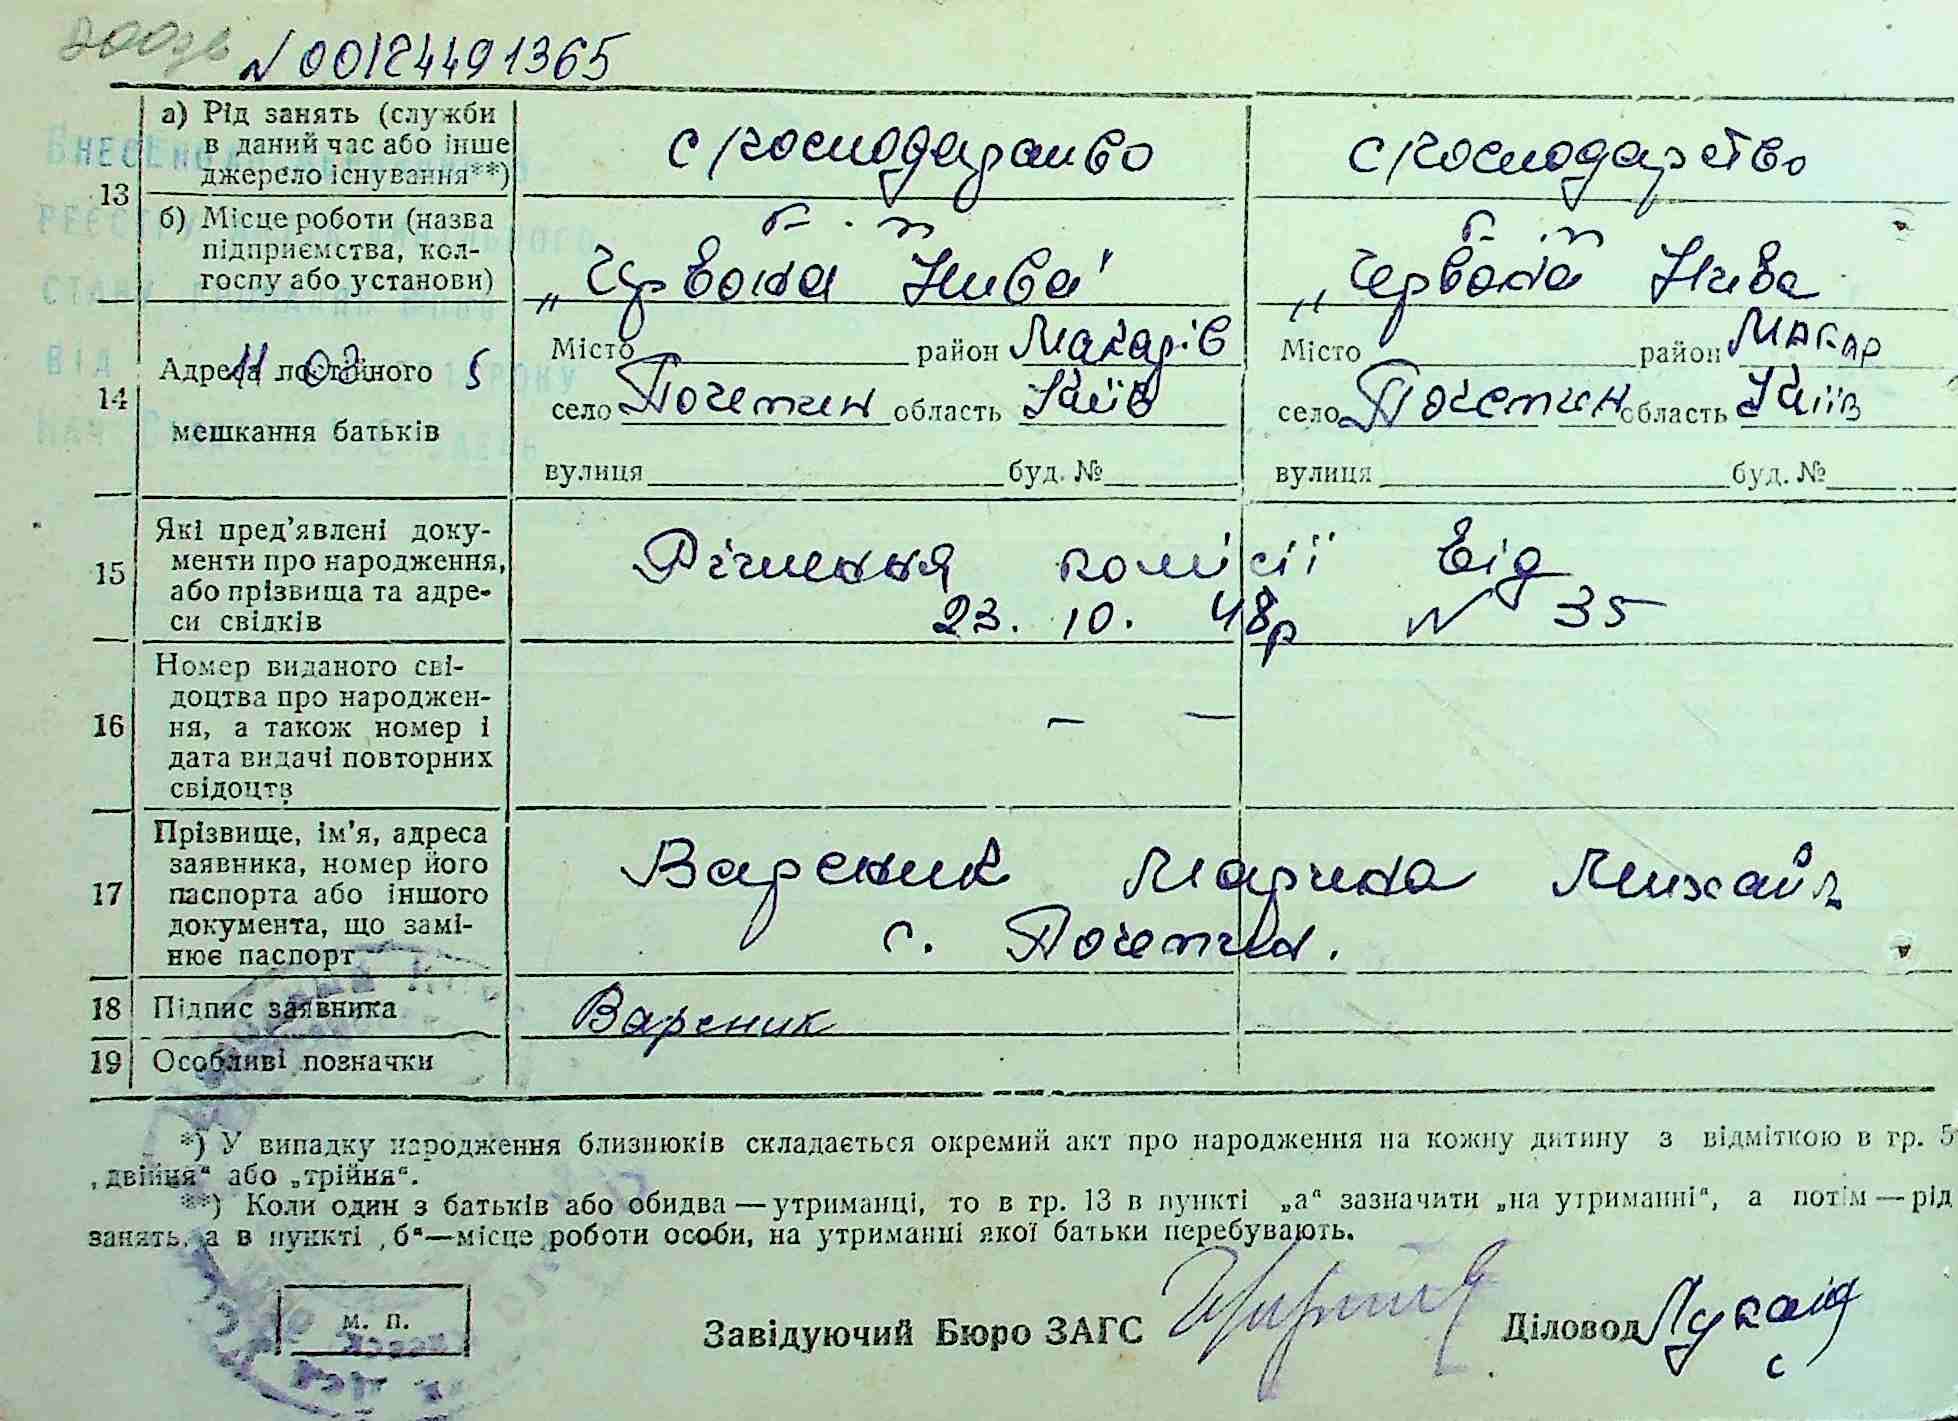 N 00124491365
13
а) Рід занять (служби
в даний час або інше
джерело існування**)
с/господарство
с/господарство
б) Місце роботи (назва
підприємства, кол-
госпу або установи)
к-п
„Червона Нива"
к-п
„Червона Нива
14
Адреса постійного
мешкання батьків
Місто район Макарів
село Почепин область Київ
вулиця буд. №
Місто район Макар
село Почепин область Київ
вулиця буд. №
Внесено до
реєстру
стану громадян
від 11 02 5 року
15
Які пред'явлені доку-
менти про народження,
або прізвища та адре-
си свідків
Рішення комісії від
23. 10. 48р N 35
16
Номер виданого сві-
доцтва про народжен-
ня, а також номер і
дата видачі повторних
свідоцтв
— —
17
Прізвище, ім'я, адреса
заявника, номер його
паспорта або іншого
документа, що замі-
нює паспорт
Вареник Марина Михайл
с. Почепин.
18
Підпис заявника
Вареник
19
Особливі позначки
*) У випадку народження близнюків складається окремий акт про народження на кожну дитину з відміткою в гр. 5
„двійня" або „трійня".
**) Коли один з батьків або обидва — утриманці, то в гр. 13 в пункті „а" зазначити „на утриманні", а потім — рід
занять, а в пункті „б"—місце роботи особи, на утриманні якої батьки перебувають.
м. п.
Завідуючий Бюро ЗАГС
Діловод